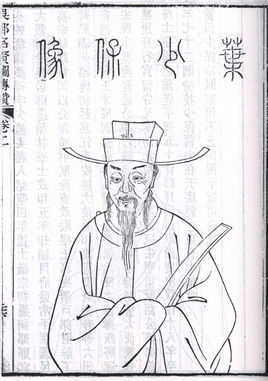 葉少保像
吳郡名賢圖傳贊 卷二